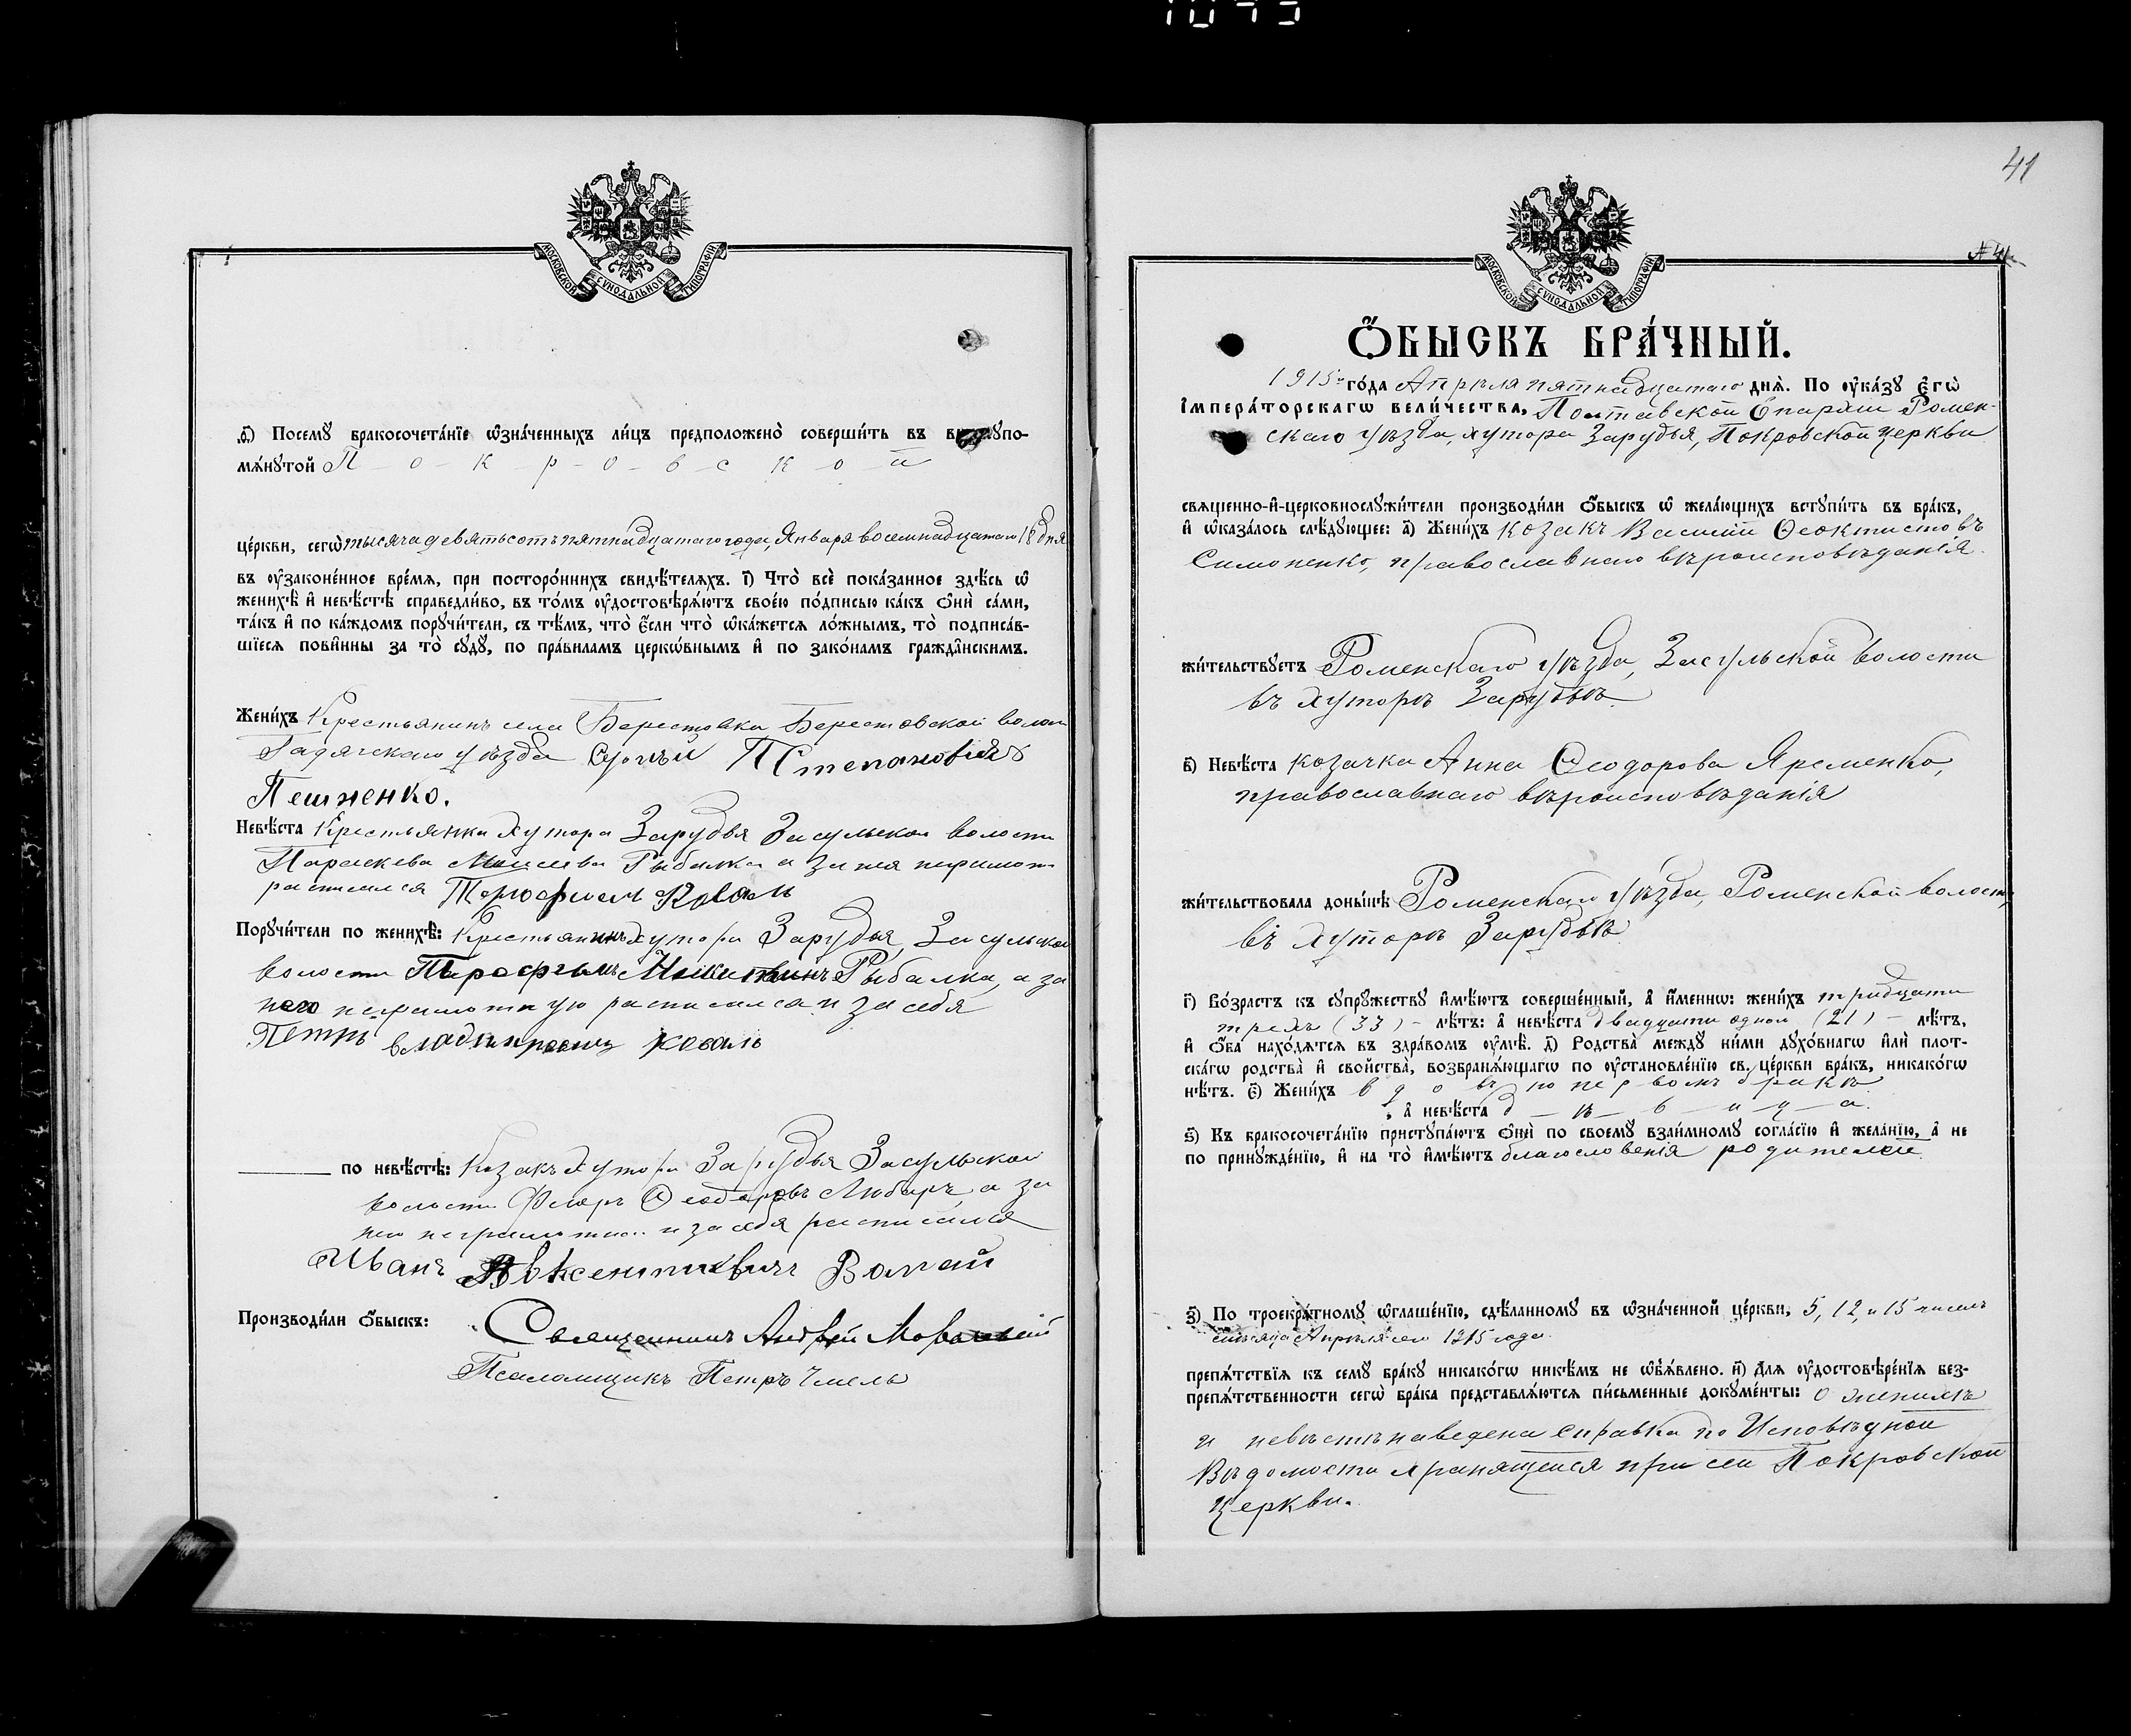 МОСКОВСКОЙ СѴНОДАЛЬНОЙ ТИПОГРАФІИ
ѳ҃) Посемꙋ бракосочета́нїе ѡ҆зна́ченныхъ ли́цъ предположено̀ соверши́ть въ
мѧ́нꙋтой П-о-к-р-о-в-с-к-о-й
це́ркви, сегѡ̀ тысяча девятьсотъ пятнадцатаго года, Января восемнадцатаго 18 дня
въ оу҆законе́нное вре́мѧ, при посторо́ннихъ свидѣ́телѧхъ. і҃) Что̀ всѐ пока́занное здѣ́сь ѡ҆
женихѣ̀ и҆ невѣ́стѣ справедли́во, въ то́мъ оу҆достовѣрѧ́ютъ свое́ю по́дписью ка́къ ѻ҆нѝ са́ми,
та́къ и҆ по ка́ждомъ порꙋчи́тели, съ тѣ́мъ, что̀ є҆́сли что̀ ѡ҆ка́жетсѧ ло́жнымъ, то̀ подписа́в-
шїесѧ пови́нны за то̀ сꙋдꙋ̀, по пра́виламъ церкѡ́внымъ и҆ по зако́намъ гражда́нскимъ.
Жени́хъ Крестьянинъ села Берестовки Берестовской волости
Гадячскаго уѣзда Сергѣй П Степановичъ
Пешненко.
Невѣ́ста Крестьянка хутора Зарудья Засульской волости
Параскева Моисеева Рыбалка а за нея неграмот
расписался Коваль
Порꙋчи́тели по женихѣ̀: Крестьянинъ хутора Зарудья, Засульской
волости Никитинъ Рыбалка, а за
него неграмотную расписался и за себя
Петръ Владимировичъ Коваль
по невѣ́стѣ: Козакъ хутора Зарудья Засульской
волости Ѳеодоровъ Любаръ, а за
него неграмотнаго и за себя расписался
Иванъ Авксентиевичъ
Производи́ли ѻ҆́быскъ: Священникъ Андрей
Псаломщикъ Петръ Чмель
41
МОСКОВСКОЙ СѴНОДАЛЬНОЙ ТИПОГРАФІИ
Ѻ҆́БЫСКЪ БРА́ЧНЫЙ.
1915 го́да Апрѣля пятнадцатаго днѧ̀. По оу҆ка́зꙋ є҆гѡ̀
і҆мпера́торскагѡ вели́чества, Полтавской Епархіи Ромен-
скаго уѣзда, хутора Зарудья, Покровской церкви
свѧщенно-и҆-церковнослꙋжи́тели производи́ли ѻ҆́быскъ ѡ҆ жела́ющихъ встꙋпи́ть въ бра́къ,
и҆ ѡ҆каза́лось слѣ́дꙋющее: а҃) Жени́хъ козакъ Василій Ѳеоктистовъ
Симоненко, православнаго вѣроисповѣданія
жи́тельствꙋетъ Роменскаго уѣзда, Засульской волости
въ хуторѣ Зарудьѣ.
в҃) Невѣ́ста козачка Анна Ѳеодорова Яременко,
православнаго вѣроисповѣданія
жи́тельствовала доны́нѣ Роменскаго уѣзда, Роменской волости,
въ хуторѣ Зарудьѣ
г҃) Во́зрастъ къ сꙋпрꙋ́жествꙋ и҆мѣ́ютъ соверше́нный, а҆ и҆́меннѡ: жени́хъ тридцати
трехъ (33) - лѣ́тъ: а҆ невѣ́ста двадцати одной (21) - лѣ́тъ,
и҆ ѻ҆́ба нахо́дѧтсѧ въ здра́вомъ оу҆мѣ̀. д҃) Родства̀ междꙋ ни́ми дꙋхо́внагѡ и҆лѝ плот-
ска́гѡ родства̀ и҆ свойства̀, возбранѧ́ющагѡ по оу҆становле́нїю св. це́ркви бра́къ, никако́гѡ
нѣ́тъ. є҃) Жени́хъ вдовъ по первомъ бракѣ
, а҆ невѣ́ста д-ѣ-в-и-ц-а.
ѕ҃) Къ бракосочета́нїю пристꙋпа́ютъ ѻ҆нѝ по своемꙋ̀ взаи́мномꙋ согла́сїю и҆ жела́нїю, а҆ не
по принꙋжде́нїю, и҆ на то̀ и҆мѣ́ютъ благословенія родителей.
з҃) По троекра́тномꙋ ѡ҆глаше́нїю, сдѣ́ланномꙋ въ ѡ҆зна́ченной це́ркви, 5, 12, и 15 чиселъ
мѣсяца Апрѣля сего 1915 года
препѧ́тствїѧ къ семꙋ̀ бра́кꙋ никако́гѡ никѣ́мъ не ѡ҆б̾ѧ́влено. и҃) Длѧ̀ оу҆достовѣре́нїѧ без-
препѧ́тственности сегѡ̀ бра́ка представлѧ́ютсѧ пи́сьменные докꙋме́нты: о женихѣ
и невѣстѣ наведена справка по Исповѣдной
Вѣдомости хранящейся при сей Покровской
церкви.